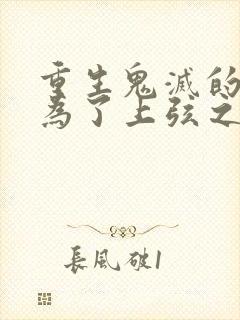 重生鬼滅的
為了上弦之
長風破1